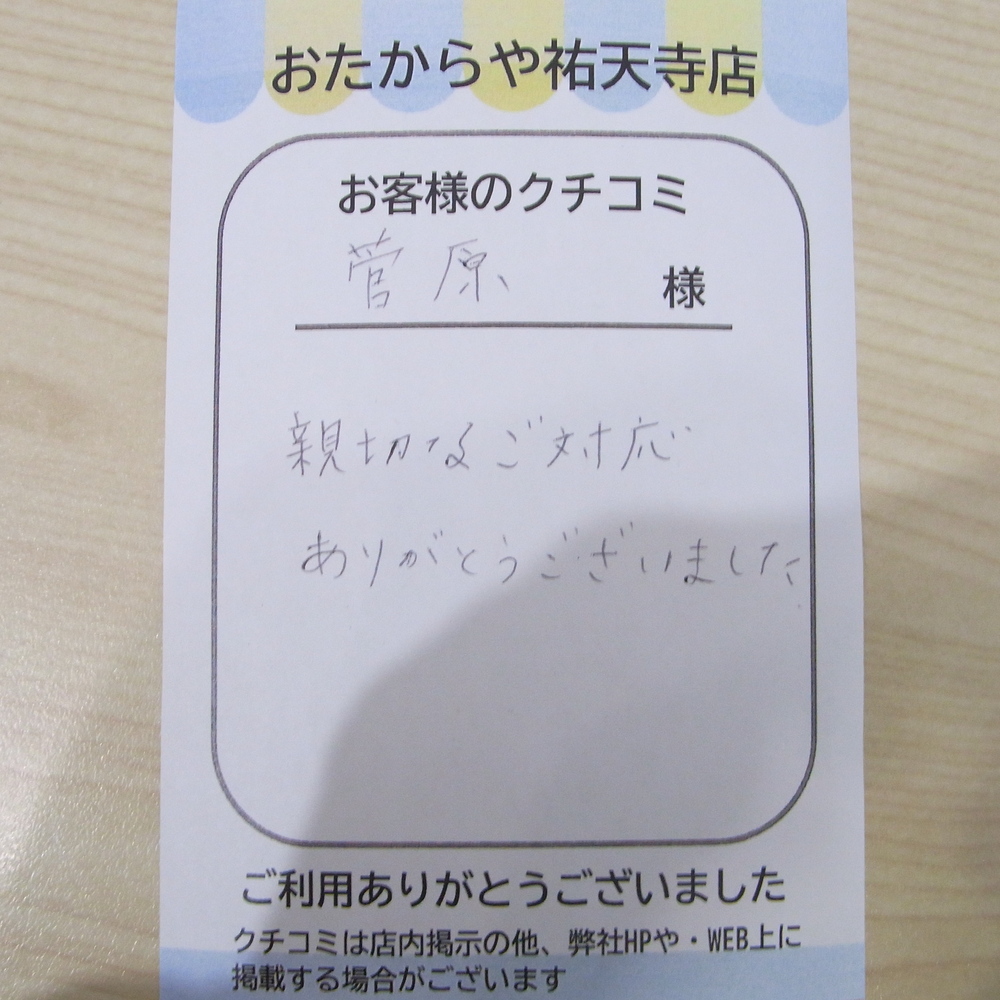 おたからや祐天寺店
お客様のクチコミ
菅原 様
親切なご対応
ありがとうございました
ご利用ありがとうございました
クチコミは店内掲示の他、弊社HPや・WEB上に
掲載する場合がございます